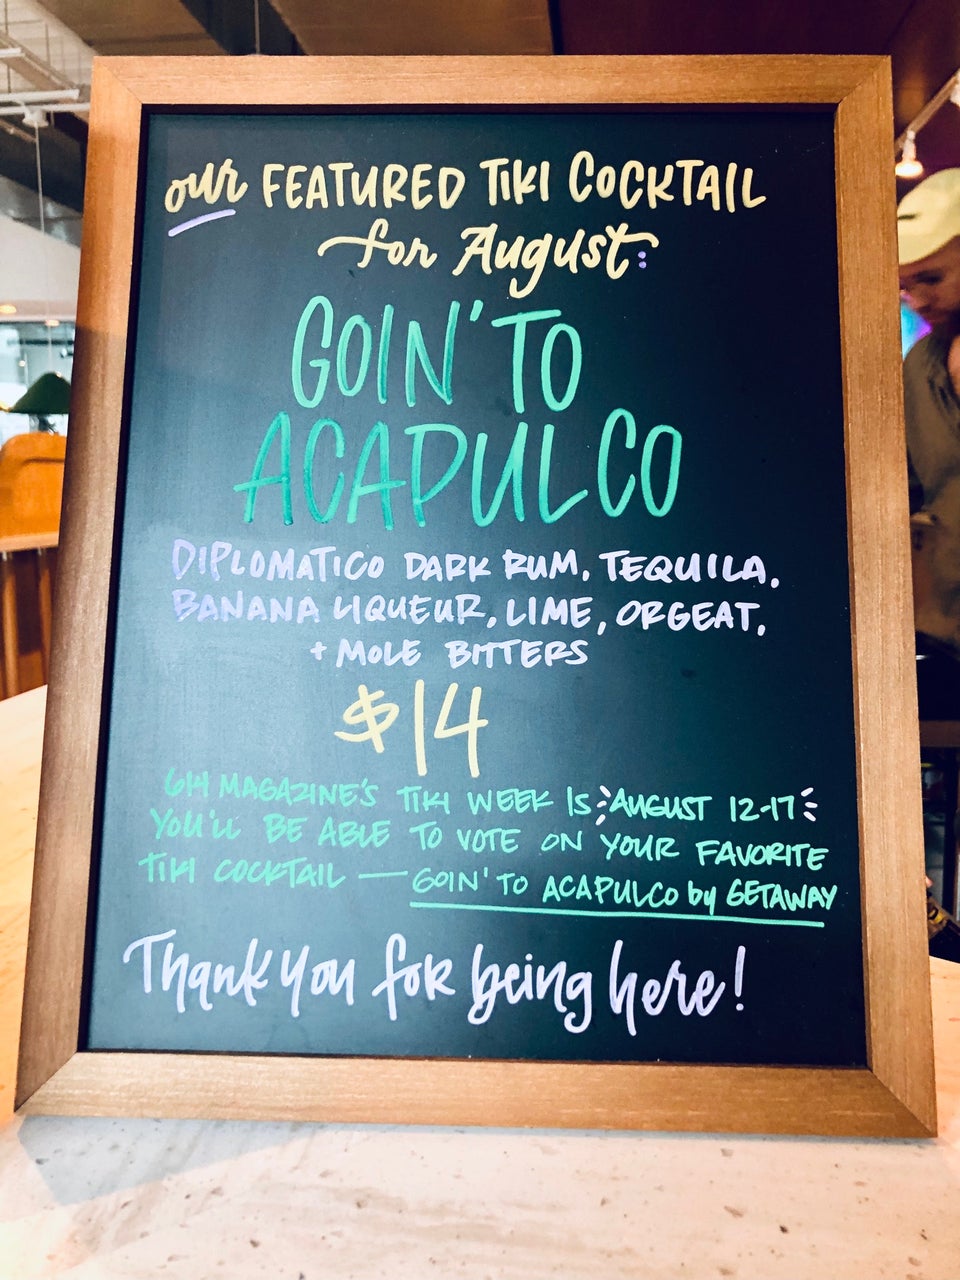 our FEATURED TIKI COCKTAIL
for August:
GOIN' TO
ACAPULCO
DIPLOMATICO DARK RUM, TEQUILA,
BANANA LIQUEUR, LIME, ORGEAT,
+ MOLE BITTERS
$14
614 MAGAZINE'S TIKI WEEK IS AUGUST 12-17
YOU'LL BE ABLE TO VOTE ON YOUR FAVORITE
TIKI COCKTAIL — GOIN' TO ACAPULCO by GETAWAY
Thank you for being here!